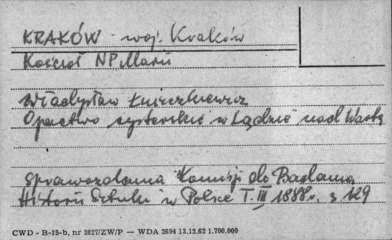 KRAKÓW woj. Kraków
Kościół NPMarii
Władysław Łuszczkiewicz
Opactwo cysterskie w Lądzie nad Wartą
Sprawozdania Komisji do Badania
Historii Sztuki w Polsce T. III 1888r. s 129
CWD - B-15-b, nr 2827/ZW/P — WDA 2694 13.12.62 1.700.000